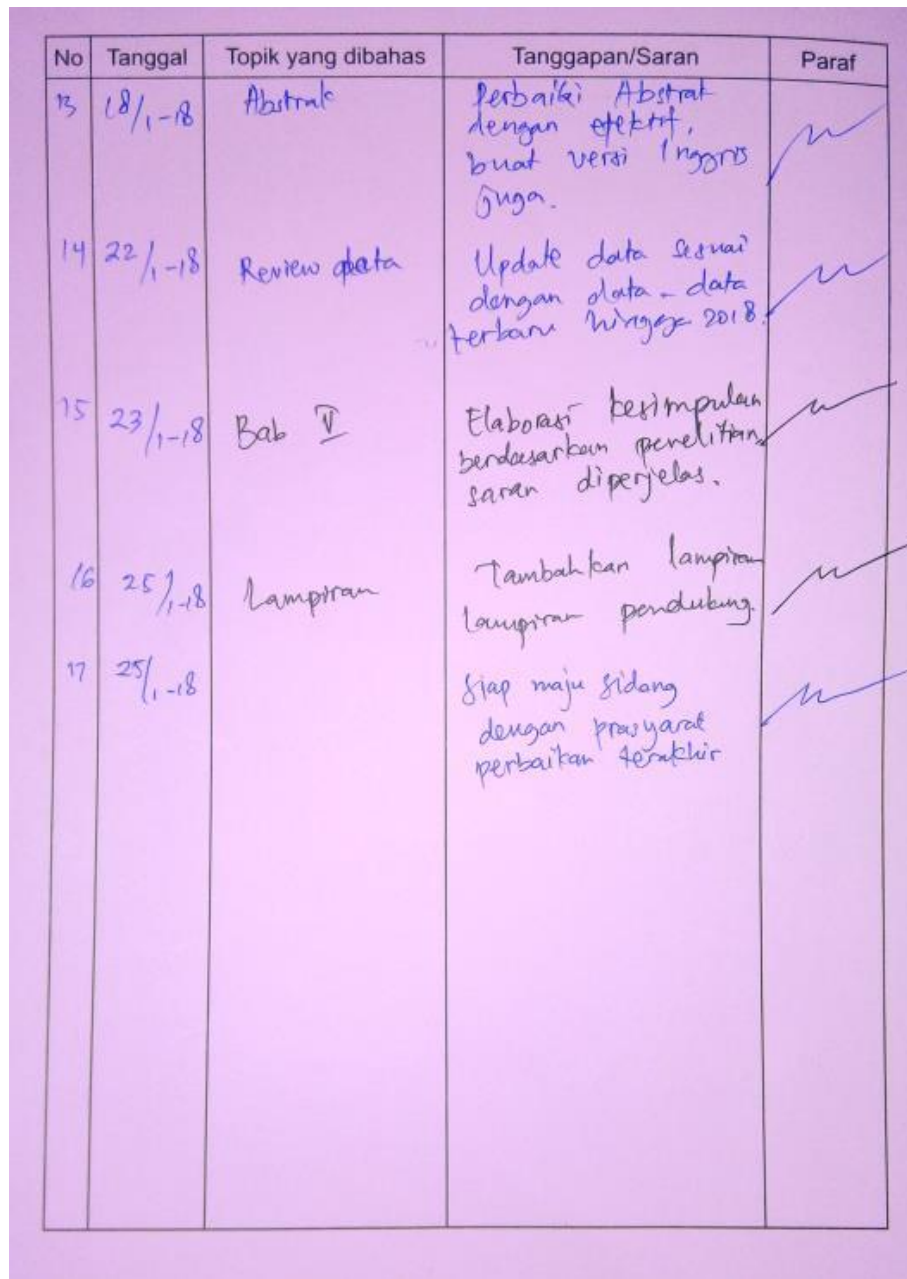 No Tanggal Topik yang dibahas Tanggapan/Saran Paraf
13 18/1-18 Abstrak Perbaiki Abstrak
dengan efektif,
buat versi Inggris
juga.
14 22/1-18 Review data Update data sesuai
dengan data-data
terbaru hingga 2018.
15 23/1-18 Bab V Elaborasi kesimpulan
berdasarkan penelitian,
saran diperjelas.
16 25/1-18 Lampiran Tambahkan lampiran
lampiran pendukung.
17 25/1-18 Siap maju sidang
dengan prasyarat
perbaikan terakhir